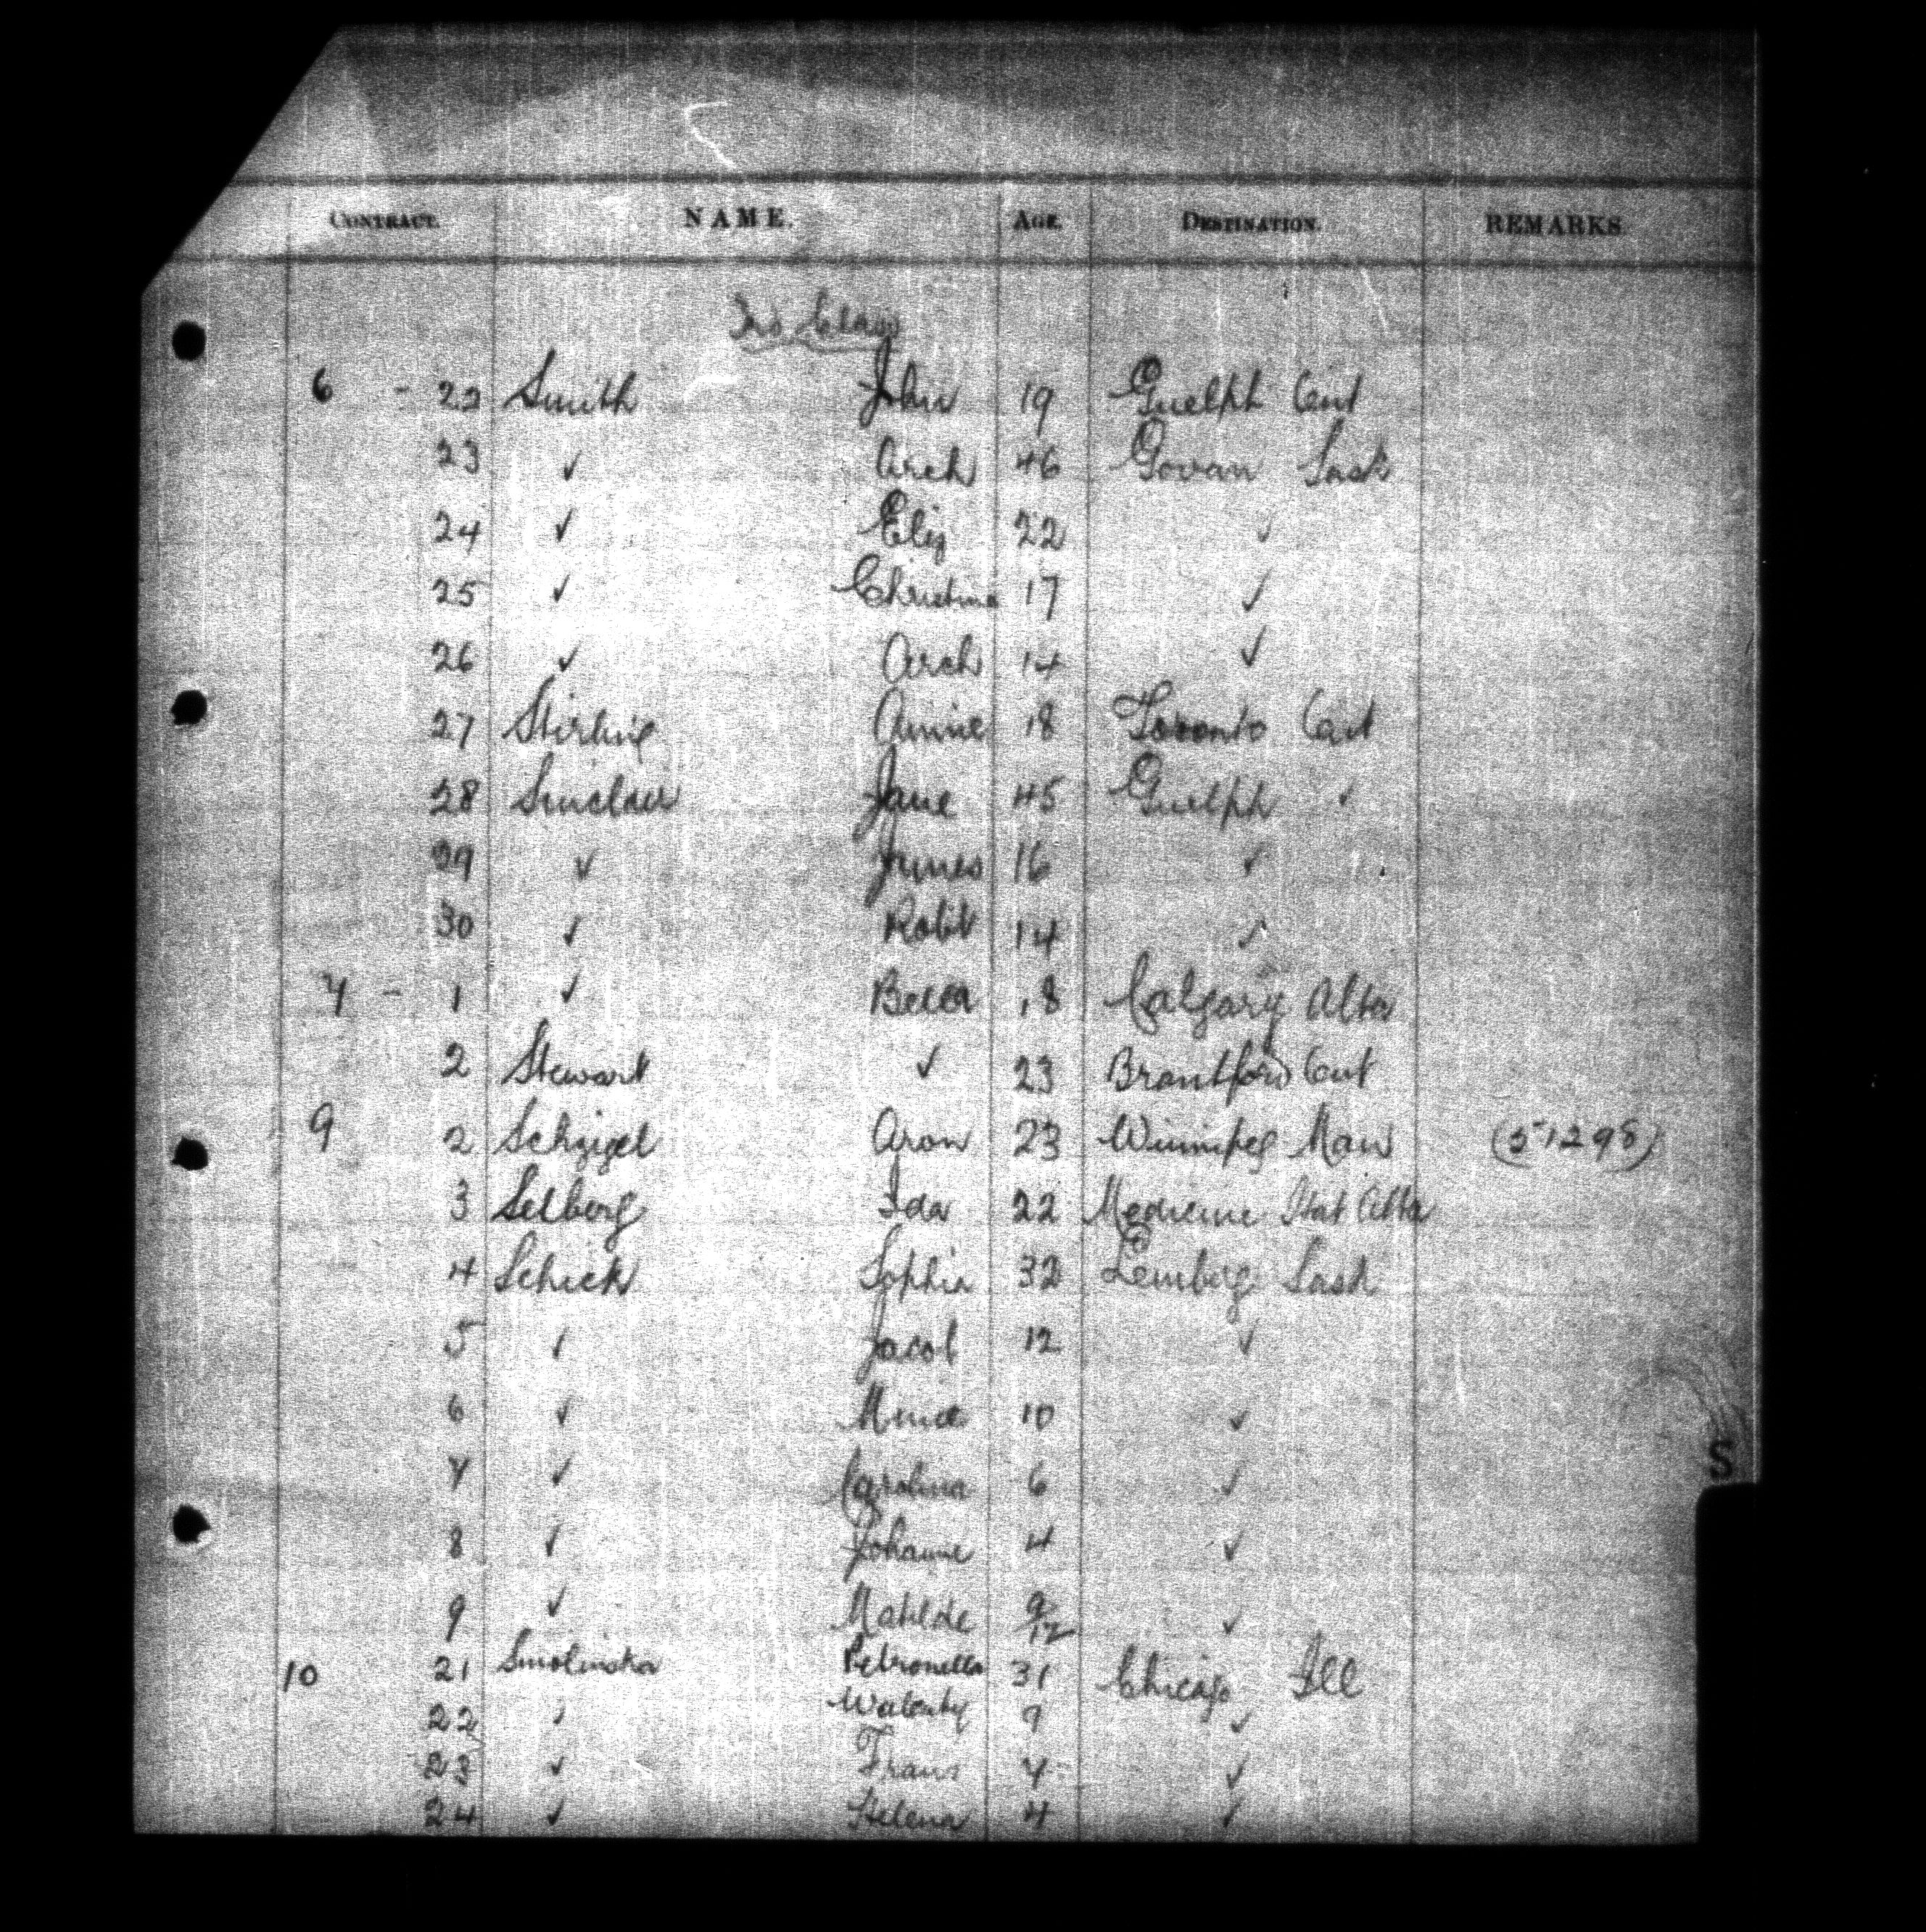 CONTRACT. NAME. AGE. DESTINATION. REMARKS
3rd Class
6 - 22 Smith John 19 Guelph Ont
23 ✓ Arch 46 Govan Sask
24 ✓ Eliz 22 ✓
25 ✓ Christina 17 ✓
26 ✓ Arch 14 ✓
27 Stirling Annie 18 Toronto Ont
28 Sinclair Jane 45 Guelph ✓
29 ✓ James 16 ✓
30 ✓ Robt 14 ✓
7 - 1 ✓ Becca 18 Calgary Alta
2 Stewart ✓ 23 Brantford Ont
9 2 Schzigel Aron 23 Winnipeg Man (51298)
3 Selberg Ida 22 Medicine Hat Alta
4 Schick Sophia 32 Lemberg Sask
5 ✓ Jacob 12 ✓
6 ✓ 10 ✓
7 ✓ Carolina 6 ✓
8 ✓ Johanne 4 ✓
9 ✓ Matilde 9/12 ✓
S
10 21 Smolinska Petronella 31 Chicago Ill
22 ✓ Walenty 9 ✓
23 ✓ Frans 7 ✓
24 ✓ Helena 4 ✓